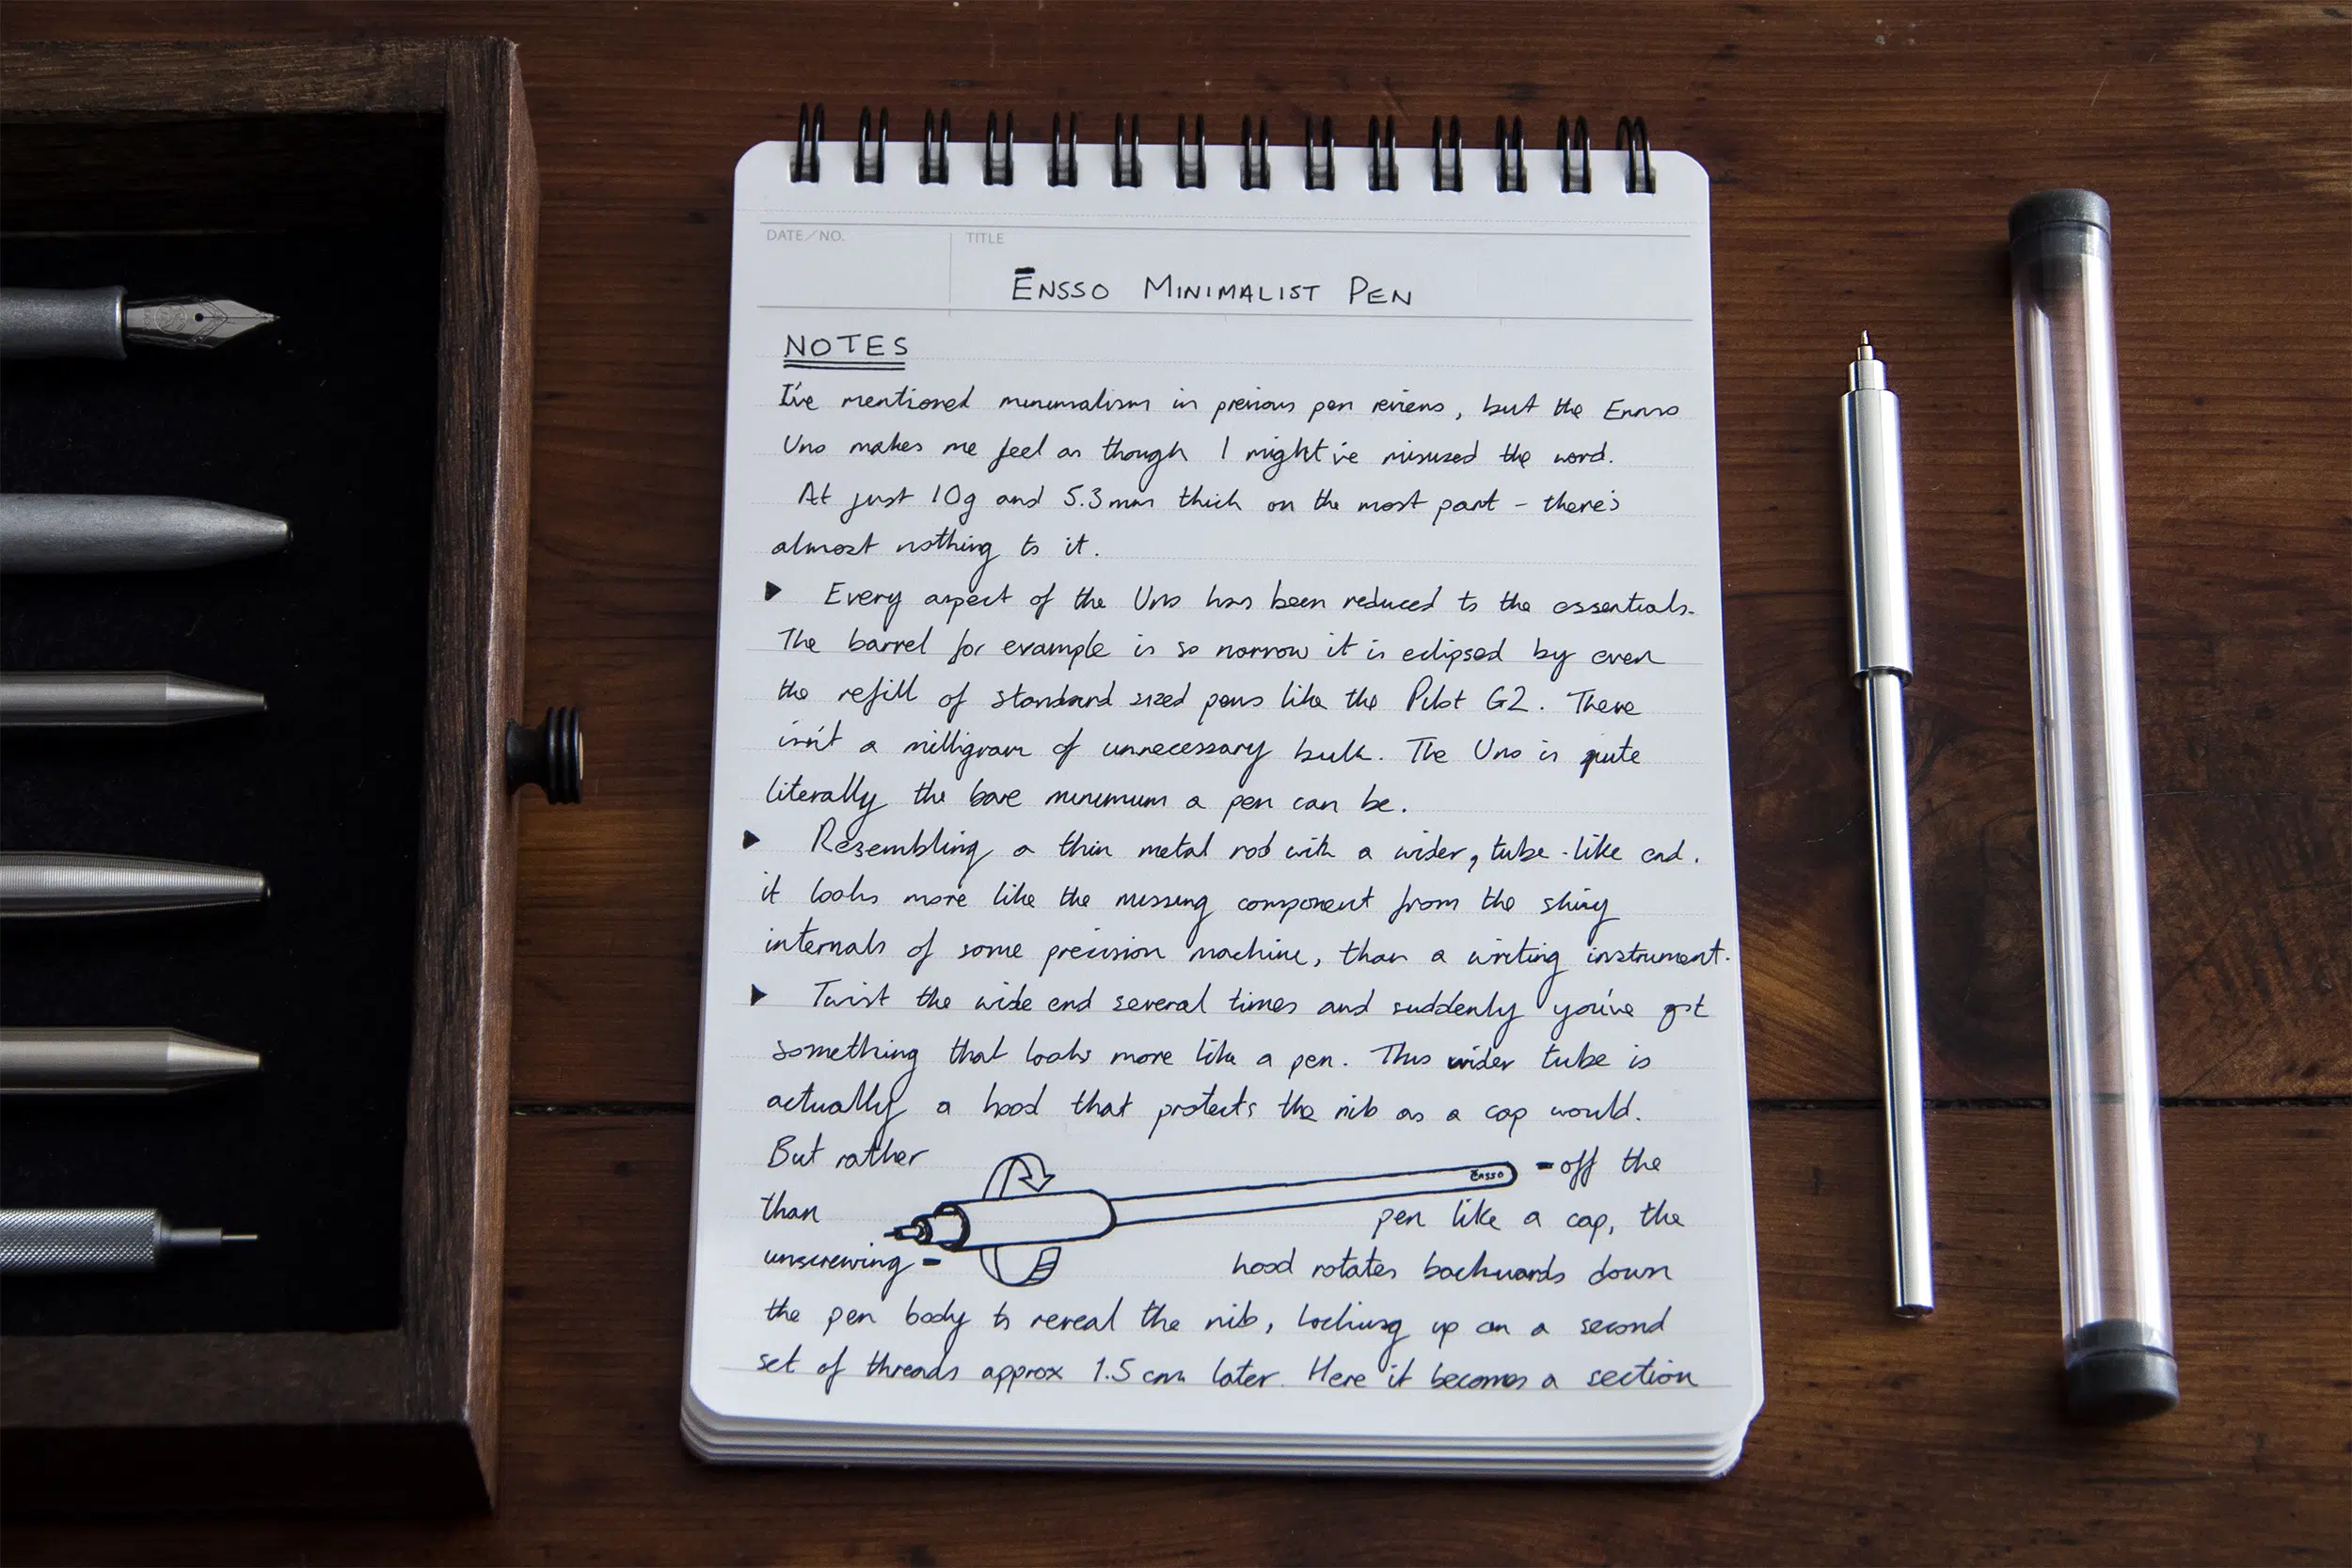 DATE/NO.
TITLE
Ēnsso Minimalist Pen
NOTES
I've mentioned minimalism in previous pen reviews, but the Ensso
Uno makes me feel as though I might've misused the word.
At just 10g and 5.3mm thick on the most part - there's
almost nothing to it.
▶ Every aspect of the Uno has been reduced to the essentials.
The barrel for example is so narrow it is eclipsed by even
the refill of standard sized pens like the Pilot G2. There
isn't a milligram of unnecessary bulk. The Uno is quite
literally the bare minimum a pen can be.
▶ Resembling a thin metal rod with a wider, tube-like end.
it looks more like the missing component from the shiny
internals of some precision machine, than a writing instrument.
▶ Twist the wide end several times and suddenly you've got
something that looks more like a pen. This wider tube is
actually a hood that protects the nib as a cap would.
But rather
than
unscrewing -
Ēnsso
- off the
pen like a cap, the
hood rotates backwards down
the pen body to reveal the nib, locking up on a second
set of threads approx 1.5cm later. Here it becomes a section